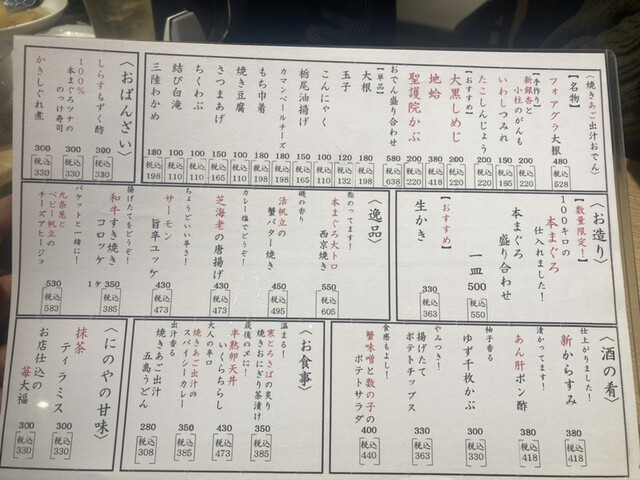 〈焼きあご出汁おでん〉
【名物】
フォアグラ大根 480 税込528
【手作り】
新銀杏と小柱のがんも 200 税込220
いわしつみれ 150 税込165
たこしんじょう 200 税込220
【おすすめ】
大黒しめじ 200 税込220
地蛤 380 税込418
聖護院かぶ 200 税込220
おでん盛り合わせ 580 税込638
【単品】
大根 180 税込198
玉子 120 税込132
こんにゃく 100 税込110
栃尾油揚げ 150 税込165
カマンベールチーズ 180 税込198
もち巾着 180 税込198
焼き豆腐 100 税込110
さつまあげ 150 税込165
ちくわぶ 100 税込110
結び白滝 100 税込110
三陸わかめ 180 税込198
〈おばんざい〉
しらすもずく酢 300 税込330
100%
本まぐろツナの
のっけ寿司 300 税込330
かきしぐれ煮 300 税込330
〈お造り〉
【数量限定!】
100キロの
本まぐろ
仕入れました!
本まぐろ
盛り合わせ
一皿 500 税込550
【おすすめ】
生かき 330 税込363
〈逸品〉
脂のってます!
本まぐろ大トロ
西京焼き 550 税込605
磯の香り
活帆立の
蟹バター焼き 450 税込495
カレー塩でどうぞ!
芝海老の唐揚げ 430 税込473
ちょうどいい辛さ!
サーモン
旨辛ユッケ 430 税込473
揚げたてをどうぞ!
和牛すき焼き
コロッケ 1ヶ 350 税込385
バケットと一緒に!
九条葱と
ベビー帆立の
チーズアヒージョ 530 税込583
〈酒の肴〉
仕上がりました!
新からすみ 380 税込418
漬かってます!
あん肝ポン酢 380 税込418
柚子香る
ゆず千枚かぶ 300 税込330
やみつき!
揚げたて
ポテトチップス 330 税込363
食感もよし!
蟹味噌と数の子の
ポテトサラダ 400 税込440
〈お食事〉
温まる!
寒とろさばの炙り
焼きおにぎり茶漬け 350 税込385
最後の〆に!
半熟卵天丼
いくらちらし 430 税込473
大人の辛口
焼きあご出汁の
スパイシーカレー 350 税込385
出汁香る
焼きあご出汁
五島うどん 280 税込308
〈にのやの甘味〉
抹茶
ティラミス 300 税込330
お店仕込の
苺大福 300 税込330